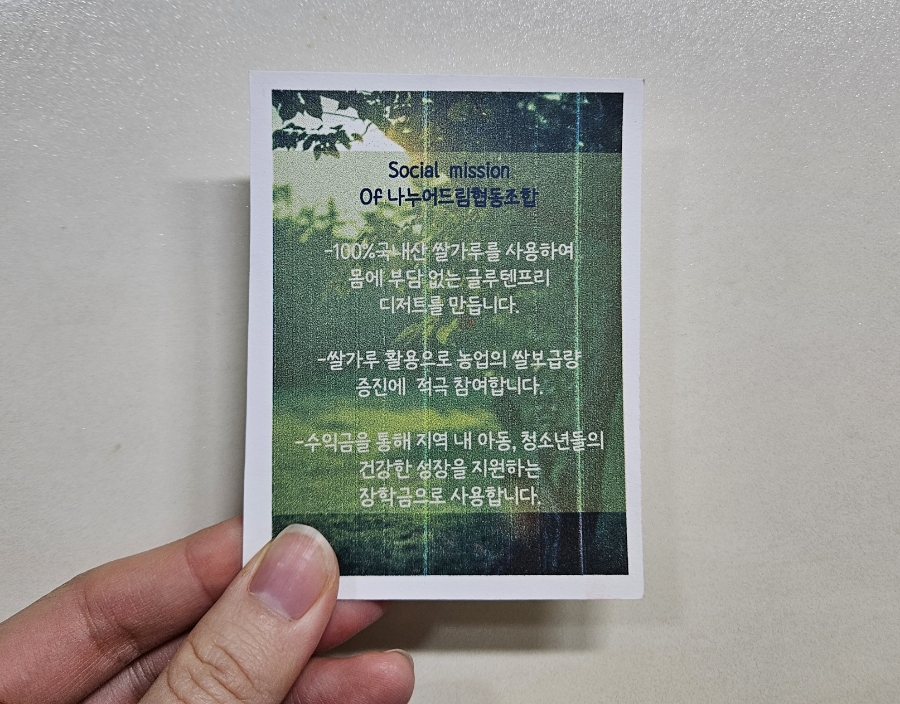 Social mission
Of 나누어드림협동조합
-100%국내산 쌀가루를 사용하여
몸에 부담 없는 글루텐프리
디저트를 만듭니다.
-쌀가루 활용으로 농업의 쌀보급량
증진에 적극 참여합니다.
-수익금을 통해 지역 내 아동, 청소년들의
건강한 성장을 지원하는
장학금으로 사용합니다.